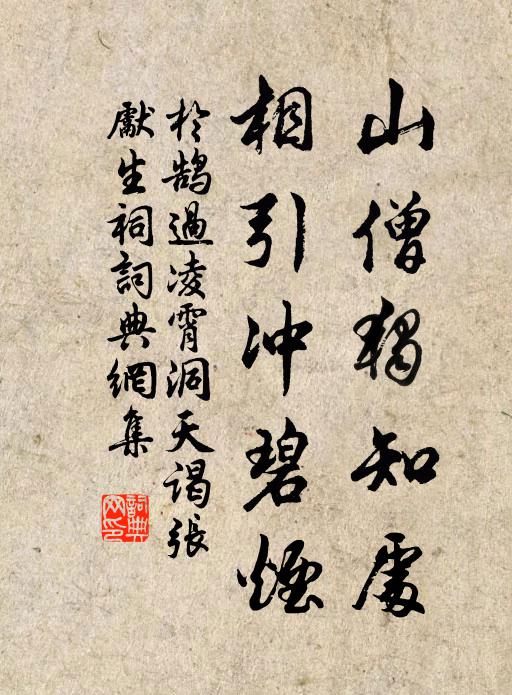 山僧獨知處
相引冲碧煙
於鵠過凌霄洞天謁張
獻生祠詞典網集
詞典网印